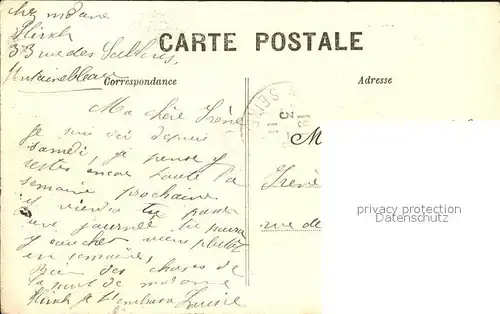 chez madame
Hirsch
33 rue des Sablons,
Fontainebleau
CARTE POSTALE
Correspondance
Adresse
Ma chère Irène
Je suis ici depuis
samedi, je pense y
rester encore toute la
semaine prochaine
y viendra tu passer
une journée. Tu pourra
y coucher, viens plutôt
en semaine,
Bien des choses de
la part de madame
Hirsch Je t'embrasse
SEINE
M
Irène
rue de
privacy protection
Datenschutz